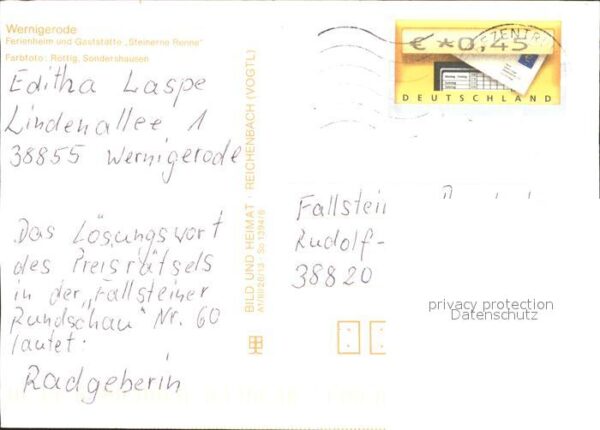 Wernigerode
Ferienheim und Gaststätte „Steinerne Renne"
Farbfoto: Rottig, Sondershausen
Editha Laspe
Lindenallee 1
38855 Wernigerode
Das Lösungswort
des Preisrätsels
in der „Fallsteiner
Rundschau" Nr. 60
lautet:
Radgeberin
BILD UND HEIMAT · REICHENBACH (VOGTL)
€ *0,45
DEUTSCHLAND
Fallstein
Rudolf-
38820
privacy protection
Datenschutz